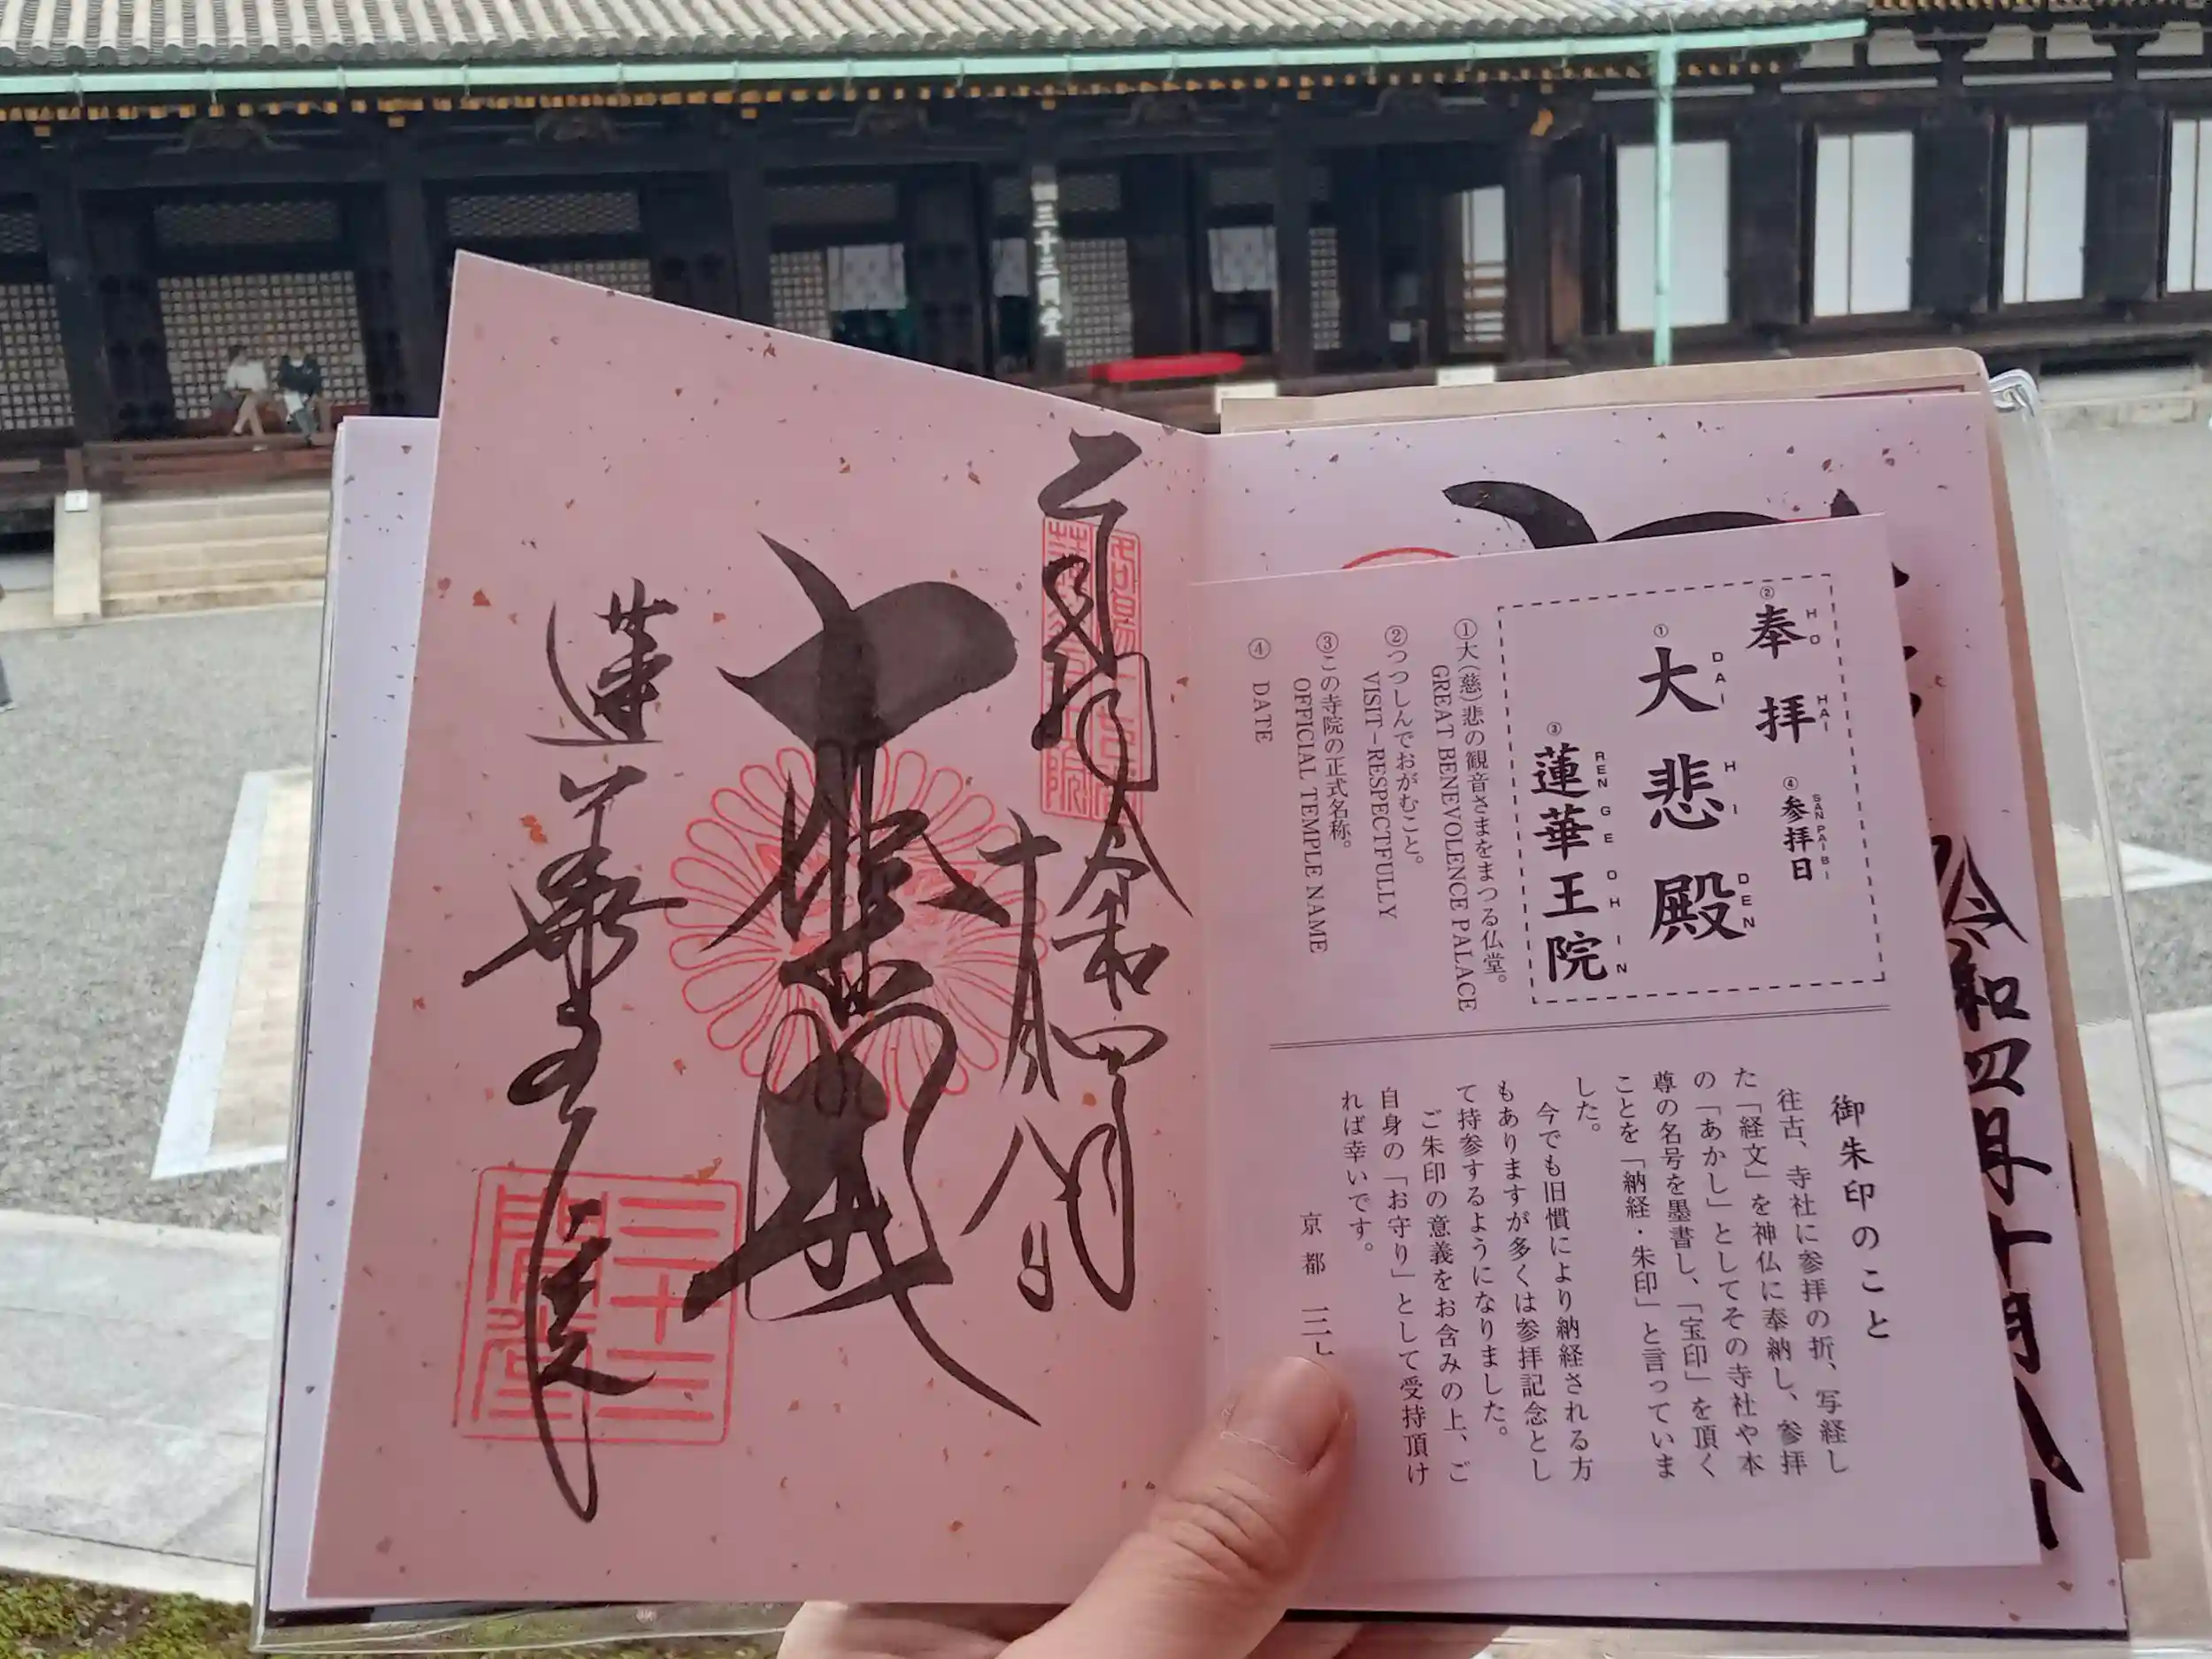 三十三間堂
令和四年十月八日
②奉拝 ④参拝日
HO HAI SAN PAI BI
①大悲殿
DAI HI DEN
③蓮華王院
REN GE OH IN
①大(慈)悲の観音さまをまつる仏堂。
GREAT BENEVOLENCE PALACE
②つつしんでおがむこと。
VISIT–RESPECTFULLY
③この寺院の正式名称。
OFFICIAL TEMPLE NAME
④ DATE
御朱印のこと
往古、寺社に参拝の折、写経し
た「経文」を神仏に奉納し、参拝
の「あかし」としてその寺社や本
尊の名号を墨書し、「宝印」を頂く
ことを「納経・朱印」と言っていま
した。
今でも旧慣により納経される方
もありますが多くは参拝記念とし
て持参するようになりました。
ご朱印の意義をお含みの上、ご
自身の「お守り」として受持頂け
れば幸いです。
京都 三
奉拝 令和四年
十月八日
大悲殿
蓮華王院
三十三
間堂